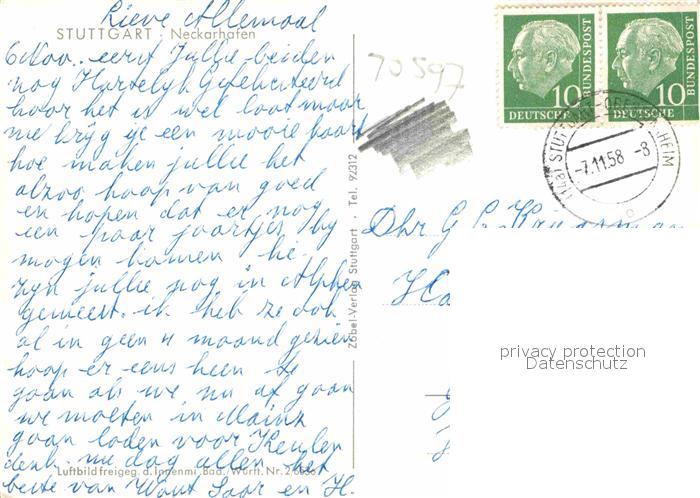 Lieve Allemaal
STUTTGART · Neckarhafen
6 Nov. eerst Jullie beiden
nog Hartelijk Gefeliciteerd
hoor het is wel laat maar
nu krijg je een mooie kaart
hoe maken jullie het
alzoo hoop van goed
en hopen dat er nog
een paar jaartjes by
mogen komen
zyn jullie nog in Alphen
geweest. ik heb ze ook
al in geen 4 maand gezien
hoop er eens heen te
gaan als we nu af gaan
we moeten in Mainz
gaan laden voor Keulen
denk nu dag allen het
Luftbild freigeg. d. Innenmi. Bad./Württ. Nr.
beste van Wout Saar en H.
Zobel-Verlag Stuttgart · Tel. 92312
70597
10
DEUTSCHE
BUNDESPOST
10
DEUTSCHE
BUNDESPOST
-7.11.58 -8
Dhr G
privacy protection
Datenschutz